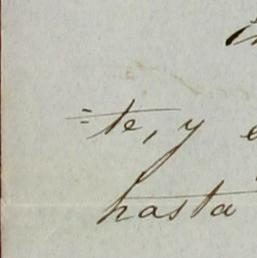 =te, y
hasta